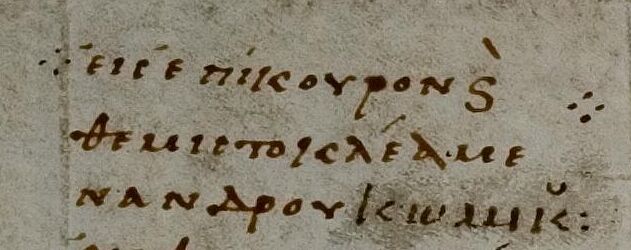 ἐις ἐπίκουρον ϗ̀
θεμιστοκλέα·με
νανδρου κωμικ̆: